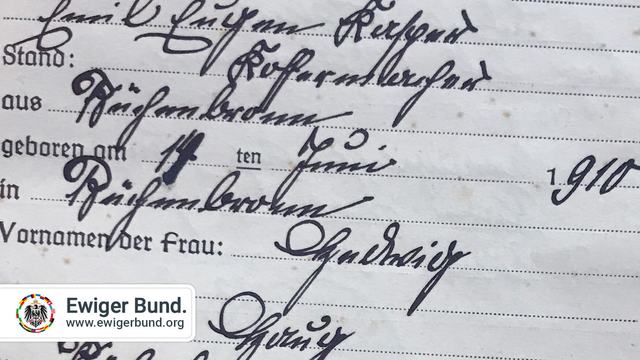 Emil Eugen Kasper
Stand: Kofermacher
aus Büchenbronn
geboren am 14 ten Juni 1910
in Büchenbronn
Vornamen der Frau: Hedwig
Haug
Ewiger Bund.
www.ewigerbund.org